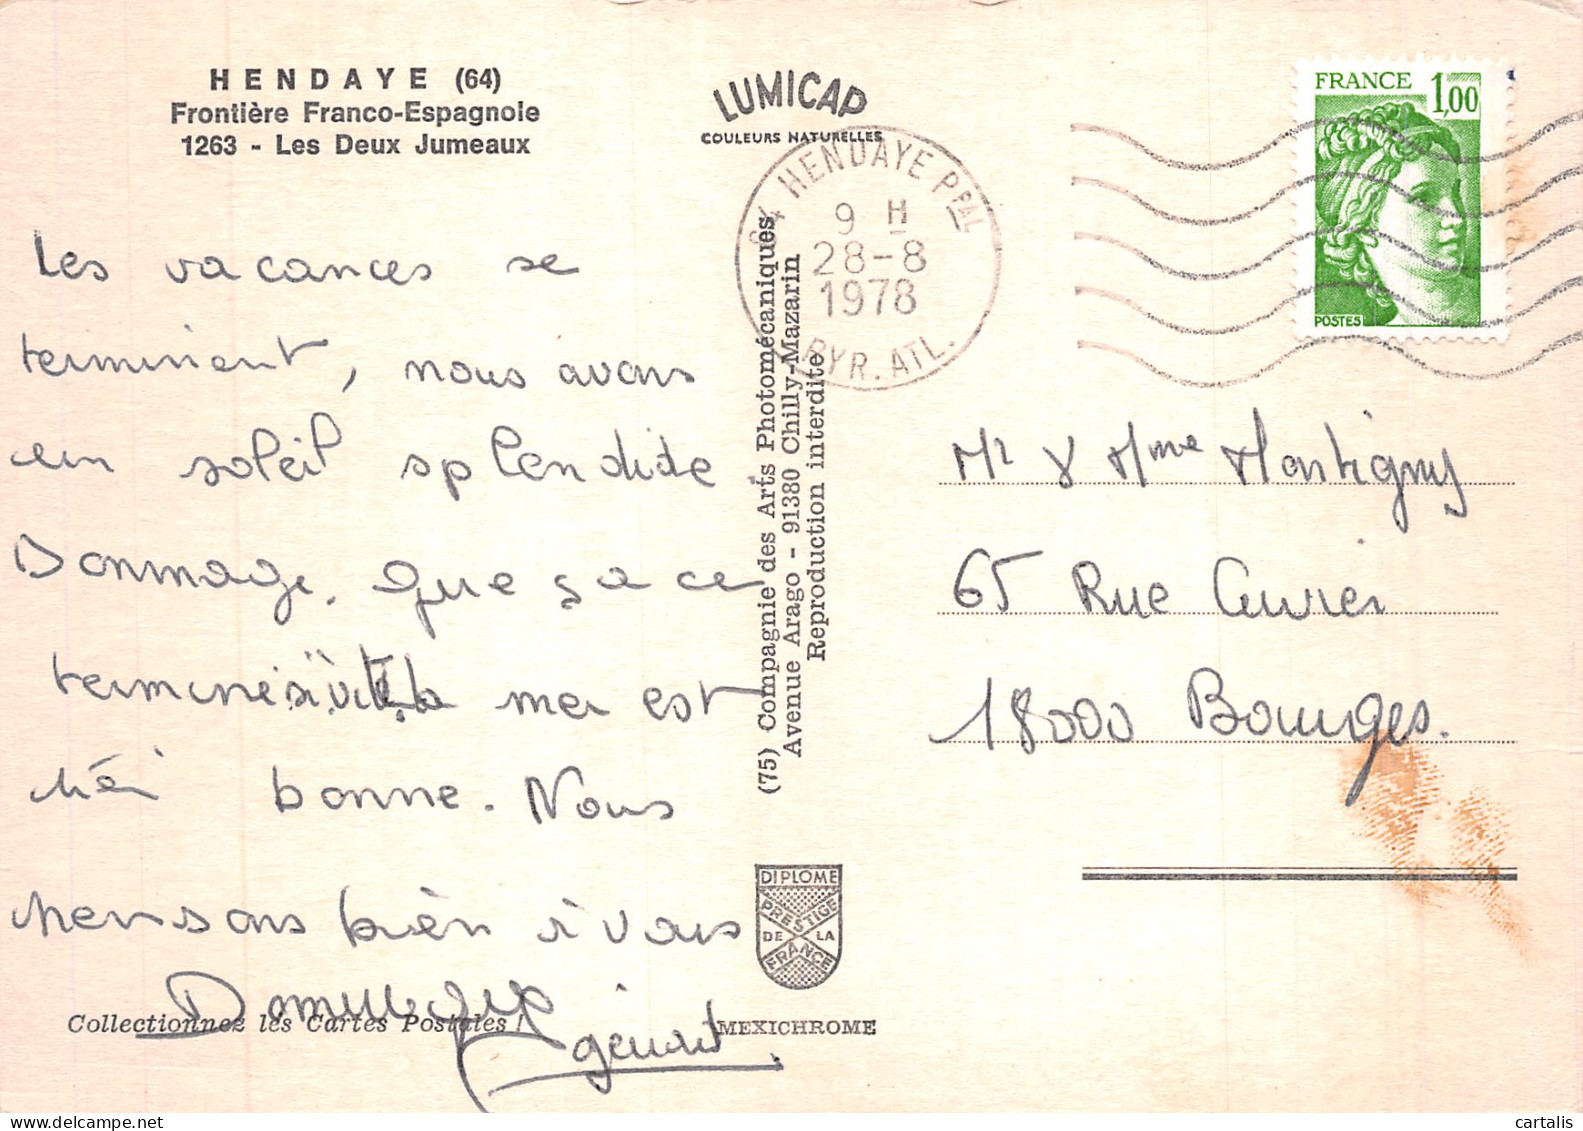 HENDAYE (64)
Frontière Franco-Espagnole
1263 - Les Deux Jumeaux
LUMICAP
COULEURS NATURELLES
64 HENDAYE PPAL
9 H
28-8
1978
PYR. ATL.
FRANCE 1,00
POSTES
Les vacances se
terminent, nous avons
eu un soleil splendide
Dommage, que ça ce
termine si vite. La mer est
très bonne. Nous
pensons bien à vous
Dominique
Gérard
(75) Compagnie des Arts Photomécaniques
Avenue Arago - 91380 Chilly-Mazarin
Reproduction interdite
Mr & Mme Martigny
65 Rue Cuvier
18000 Bourges.
DIPLOME
PRESTIGE
DE LA
FRANCE
Collectionnez les Cartes Postales !
MEXICHROME
cartalis